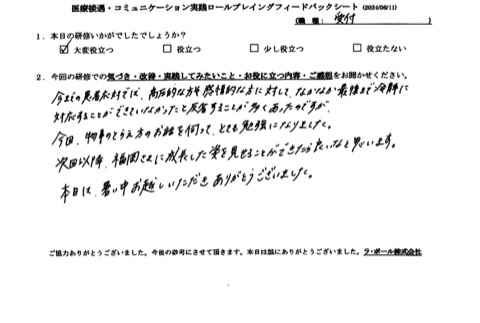 医療接遇・コミュニケーション実践ロールプレイングフィードバックシート (2024/06/11)
(職 種: 受付 )
1．本日の研修いかがでしたでしょうか？
☑ 大変役立つ □ 役立つ □ 少し役立つ □ 役立たない
2．今回の研修での気づき・改善・実践してみたいこと・お役に立つ内容・ご感想をお聞かせください。
今までの患者応対では、高圧的な方や感情的な方に対して、なかなか最後まで冷静に
対応することができていなかったと反省することが多くあったのですが、
今回、物事のとらえ方のお話を伺って、とても勉強になりました。
次回以降、福岡さまに成長した姿を見せることができたら良いなと思います。
本日は、暑い中お越しいただきありがとうございました。
ご協力ありがとうございました。今後の参考にさせて頂きます。本日は誠にありがとうございました。ラ・ポール株式会社